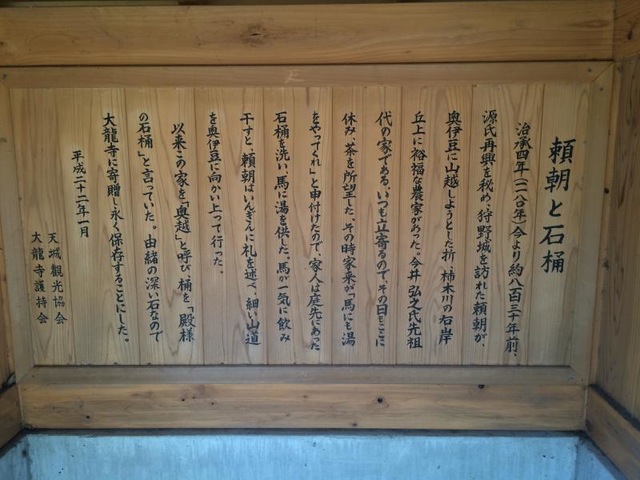 頼朝と石桶
治承四年(一一八〇年)今より約八百三十年前、
源氏再興を秘め、狩野城を訪れた頼朝が、
奥伊豆に山越しようとした折、柿木川の右岸
丘上に裕福な農家があった。今井弘之氏先祖
代の家である、いつも立寄るので、その日もここに
休み、茶を所望した。その時家来が「馬にも湯
をやってくれ」と申付けたので、家人は庭先にあった
石桶を洗い、馬に湯を供した、馬が一気に飲み
干すと、頼朝はいんぎんに礼を述べ、細い山道
を奥伊豆に向かい上って行った。
以来この家を「奥越」と呼び、桶を「殿様
の石桶」と言っていた。由緒の深い石なので
大龍寺に寄贈し永く保存することにした。
平成二十二年一月
天城観光協会
大龍寺護持会